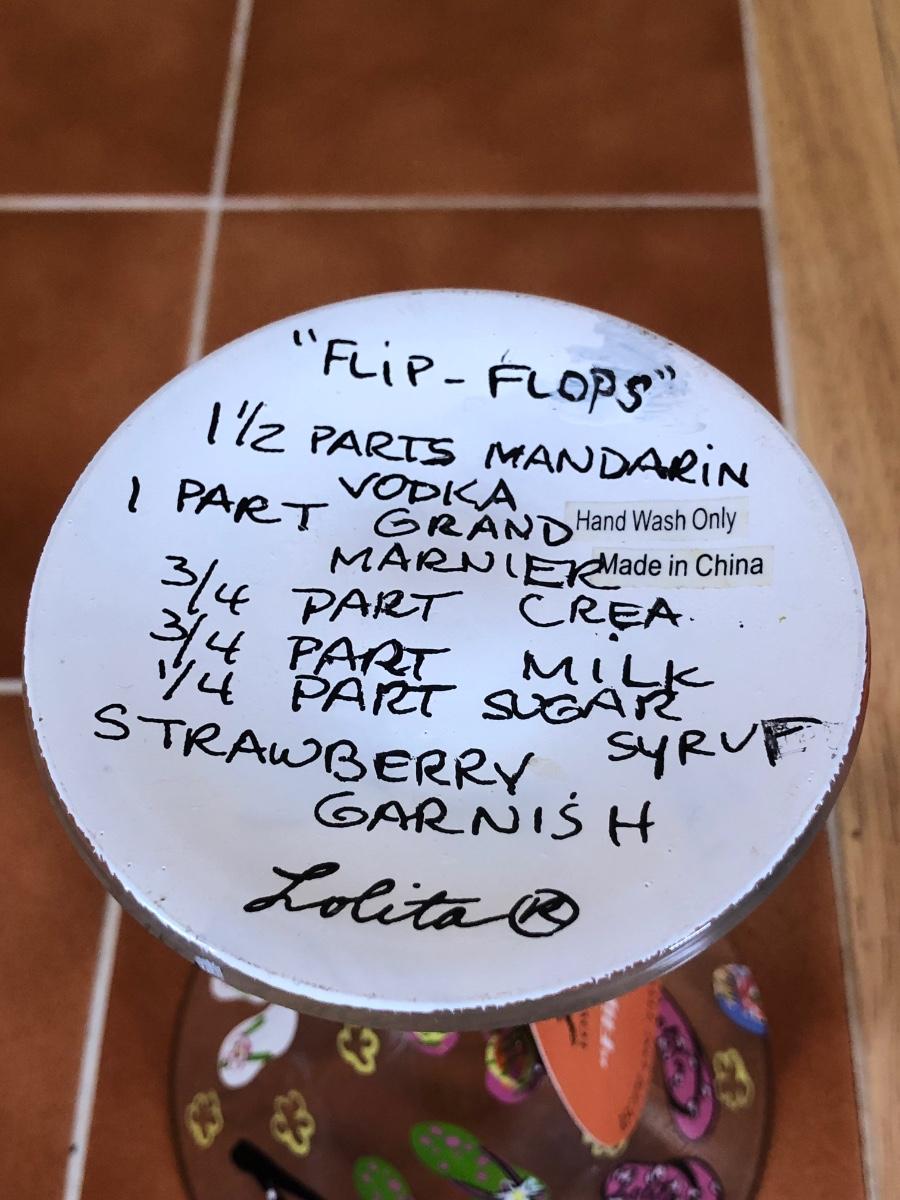 "FLiP - FLOPS"
1 1/2 PARTS MANDARiN
VODKA
1 PART GRAND
MARNIER
3/4 PART CREA
3/4 PART MILK
1/4 PART SUGAR
STRAWBERRY SYRUF
GARNISH
Lolita®
Hand Wash Only
Made in China